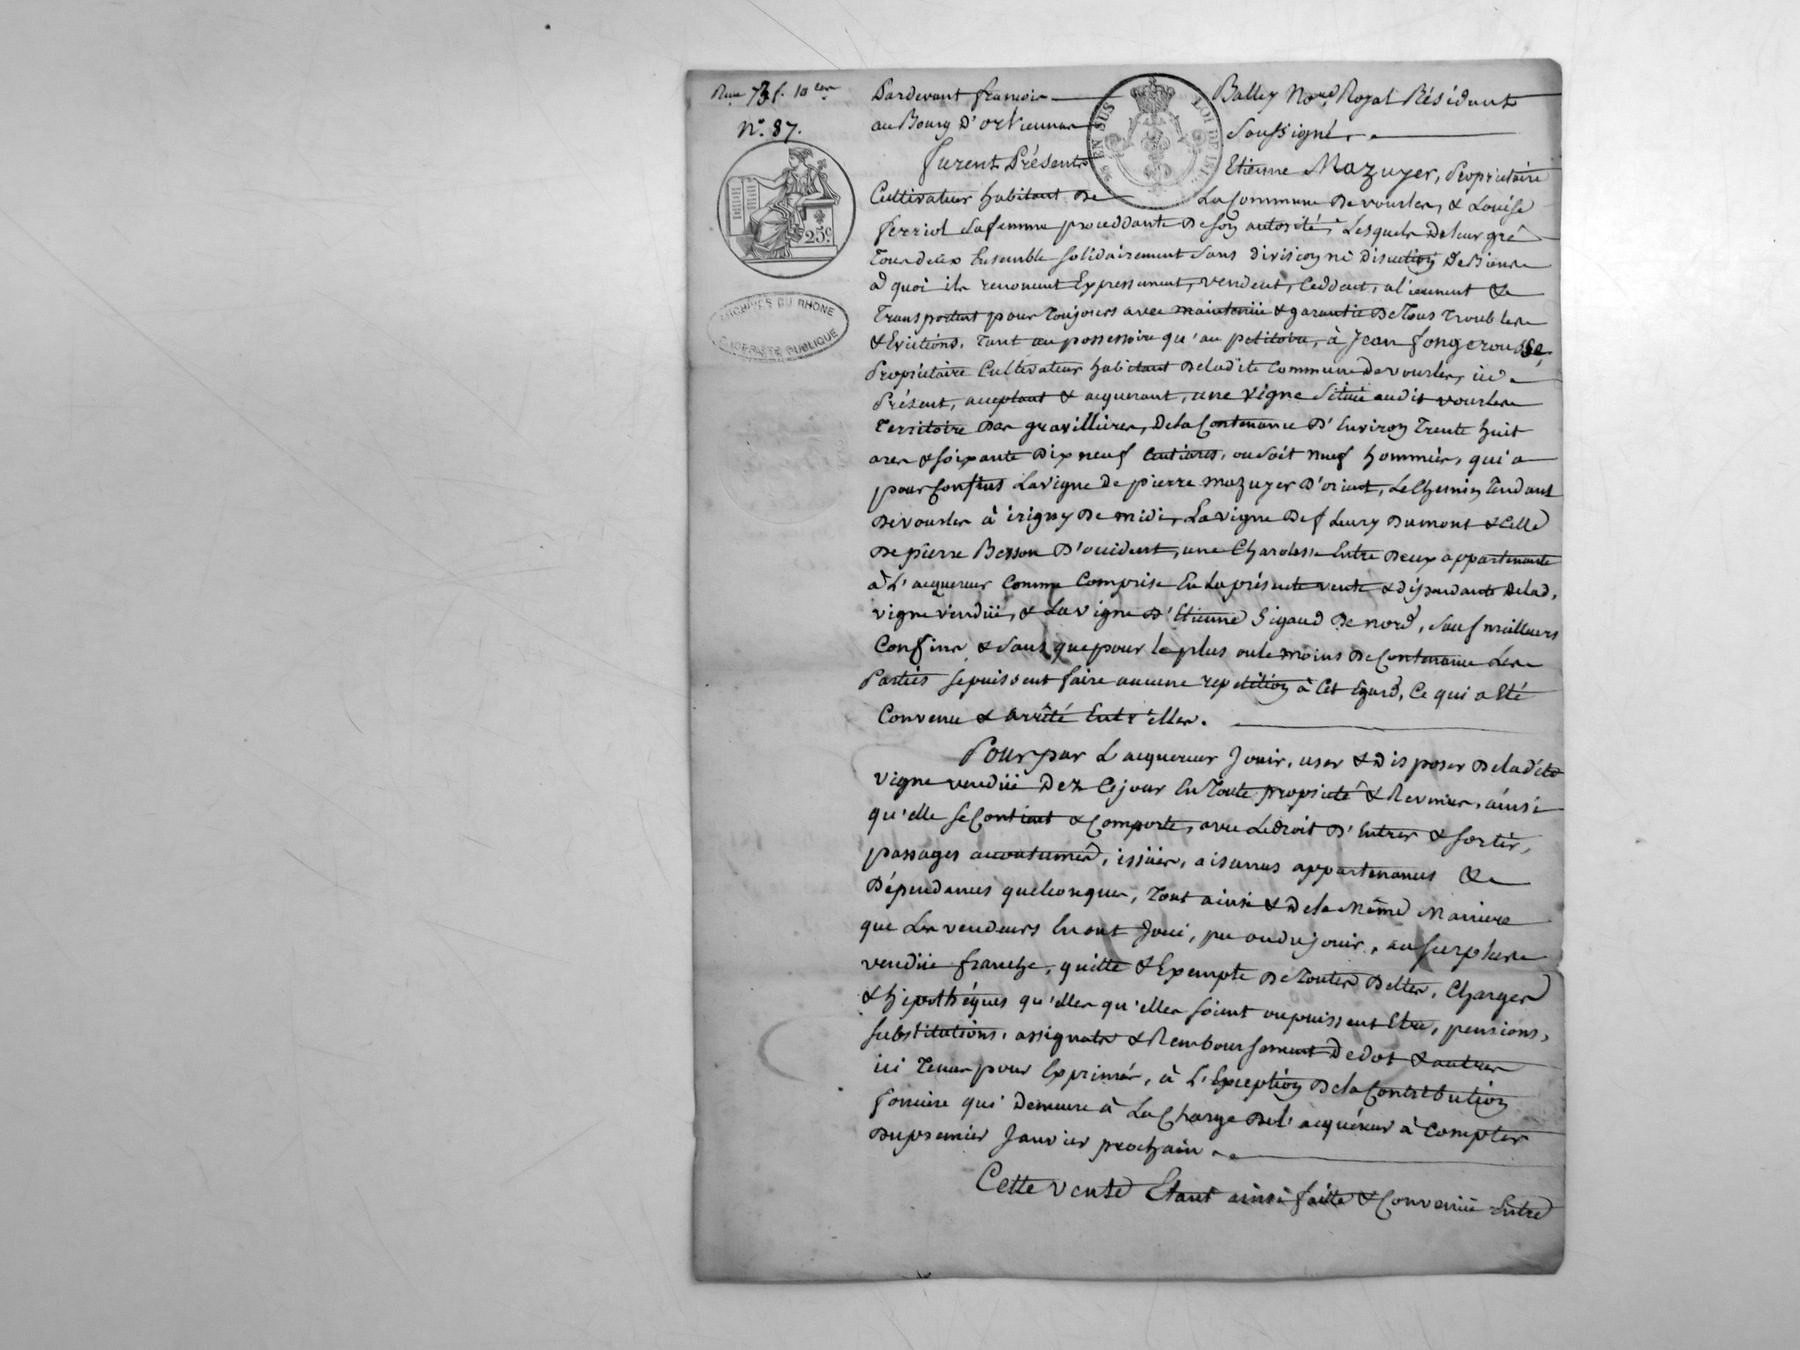 Reçu 73 f. 10 c.
N.° 87.
25.c
ARCHIVES DU RHONE
PROPRIÉTÉ PUBLIQUE
EN SUS
LOI DE 18
Pardevant françois Balley No.re Royal Résidant
au Bourg D'orliennas Soussigné.
furent Présents Etienne Mazuyer, Propriétaire
Cultivateur habitant De La Commune De vourles, & Louise
ferriol Sa femme proceddante De son autorité, Lesquels De leur gré
Tous deux Ensemble solidairement sans division ni Discution De Biens
à quoi ils renoncent Expressement, vendent, Ceddent, alienent &
Transportent pour Toujours avec maintenüe & garantie De Tous Troubles
& Evictions, Tant au possessoire qu'au petitoire, à Jean fongerousse,
Propriétaire Cultivateur habitant De ladite Commune De vourles, ici
Présent, acceptant & acquerant, une vigne Située audit vourles
Territoire Des gravillieres, De la Contenance D'Environ Trente huit
ares & soixante Dix neuf Centiares, ou soit neuf hommées, qui a
pour Confins La vigne de pierre mazuyer D'orient, Le Chemin Tendant
De vourles à irigny De midi, La vigne De fleury Dumont & Celle
De pierre Besson D'occident, une Charolesse Entre Deux appartenante
à L'acquereur Comme Comprise En La présente vente & dépendante De lad.
vigne vendüe, & La vigne D'Etienne Sigaud De nord, sauf meilleurs
Confins & sans que pour le plus ou le moins De Contenance Les
Parties se puissent faire aucune repetition à Cet Egard, Ce qui a Eté
Convenu & arrêté Entr'elles.
Pour par L'acquereur Jouir, user & Disposer De ladite
vigne vendüe Dez Ce jour En Toute proprieté & Revenus, ainsi
qu'elle se Contient & Comporte, avec Le droit D'Entrer & sortir,
passages accoutumés, issües, aisances appartenances &
Dépendances quelconques, Tout ainsi & De la Même Maniere
que Les vendeurs En ont Joui, pu ou du jouir, au surplus
vendüe franche, quitte & Exempte De Toutes Dettes, Charges
& hipothéques qu'elles qu'elles soient ou puissent Etre, pensions,
substitutions, assignats & Remboursement De dot & autres
ici Tenus pour Exprimés, à L'Exception De la Contribution
fonciere qui Demeure à La Charge De l'acquéreur à Compter
Du premier Janvier prochain.
Cette vente Etant ainsi faitte & Convenüe Entre